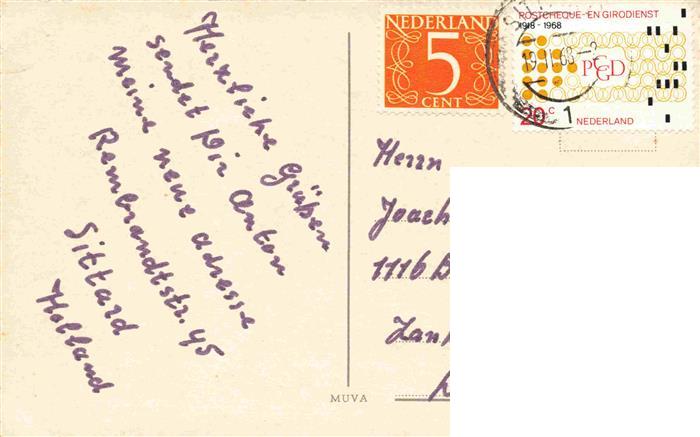 Herzliche Grüßen
sendet Dir Anton
meine neue adresse
Rembrandtstr. 45
Sittard
Holland
NEDERLAND
5
CENT
POSTCHEQUE-EN GIRODIENST
1918-1968
PCGD
20 c
NEDERLAND
1
Herrn
Joach
1116 B
MUVA